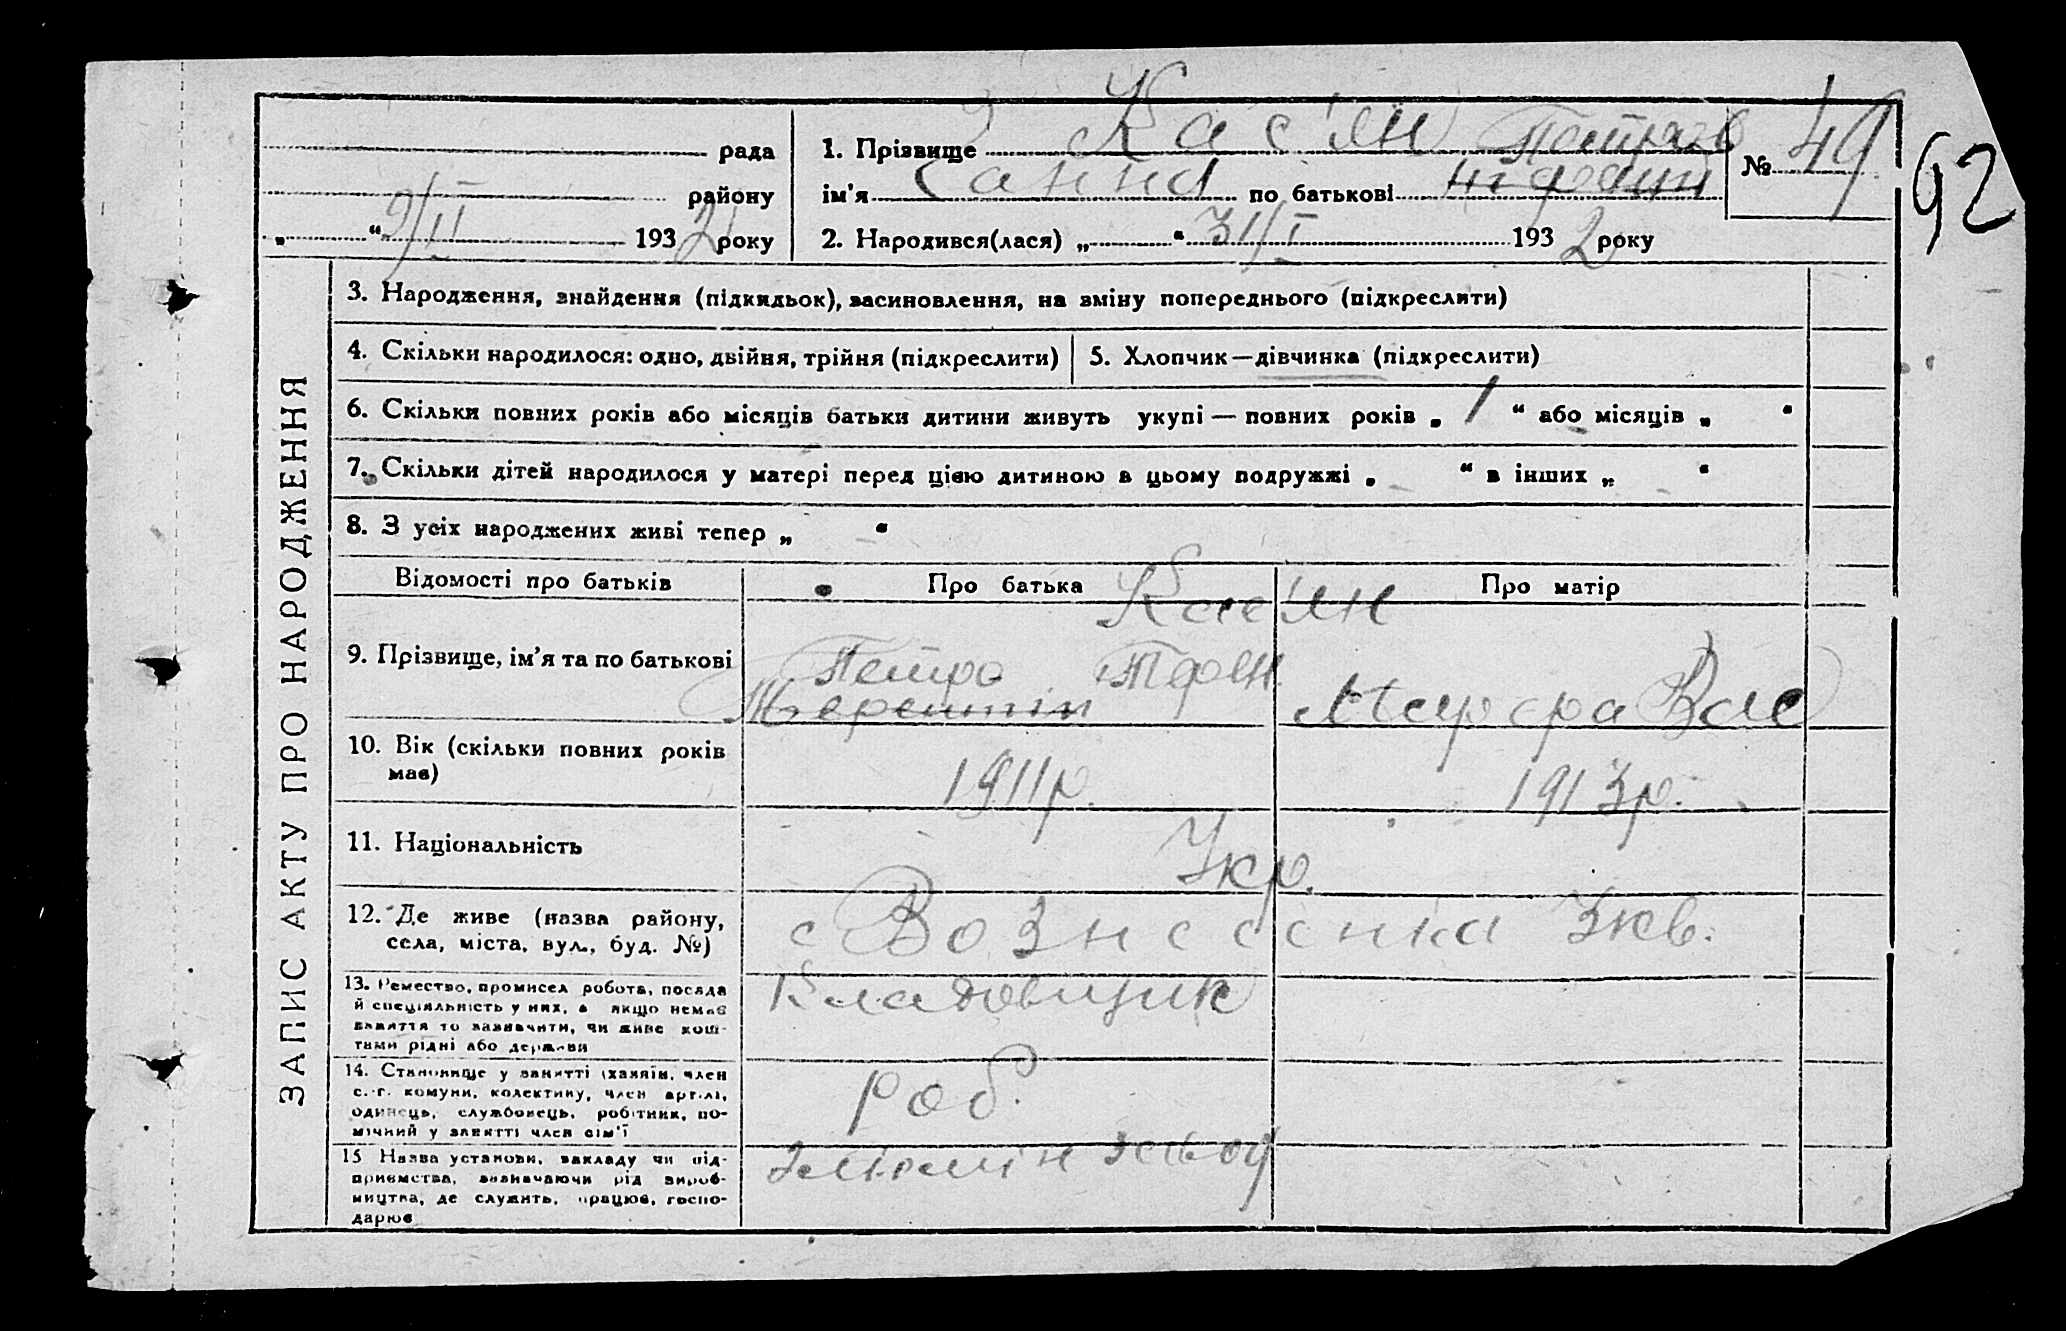 Кас'ян Петров
рада 1. Прізвище № 49 92
району ім'я Ганна по батькові
„ “ 9/II 1932 року 2. Народився(лася) „ “ 31/I 1932 року
ЗАПИС АКТУ ПРО НАРОДЖЕННЯ
3. Народження, знайдення (підкидьок), засиновлення, на зміну попереднього (підкреслити)
4. Скільки народилося: одно, двійня, трійня (підкреслити) 5. Хлопчик—дівчинка (підкреслити)
6. Скільки повних років або місяців батьки дитини живуть укупі — повних років „ 1 “ або місяців „ “
7. Скільки дітей народилося у матері перед цією дитиною в цьому подружжі „ “ в інших „ “
8. З усіх народжених живі тепер „ “
Відомості про батьків Про батька Про матір
Кас'ян
9. Прізвище, ім'я та по батькові Петро Марфа Вас
10. Вік (скільки повних років 1911р. 1913р.
має)
11. Національність Укр.
12. Де живе (назва району, с Вознесенка
села, міста, вул., буд. №)
13. Ремество, промисел робота, посада Кладовщик
й спеціяльність у них, а якщо немає
заняття то зазначити, чи живе кош-
тами рідні або держави
14. Становище у занятті (хазяїн, член роб.
с.-г. комуни, колективу, член артілі,
одинець, службовець, робітник, по-
мічний у занятті член сім'ї
15 Назва установи, закладу чи під-
приємства, зазначаючи рід вироб-
ництва, де служить, працює, госпо-
дарює